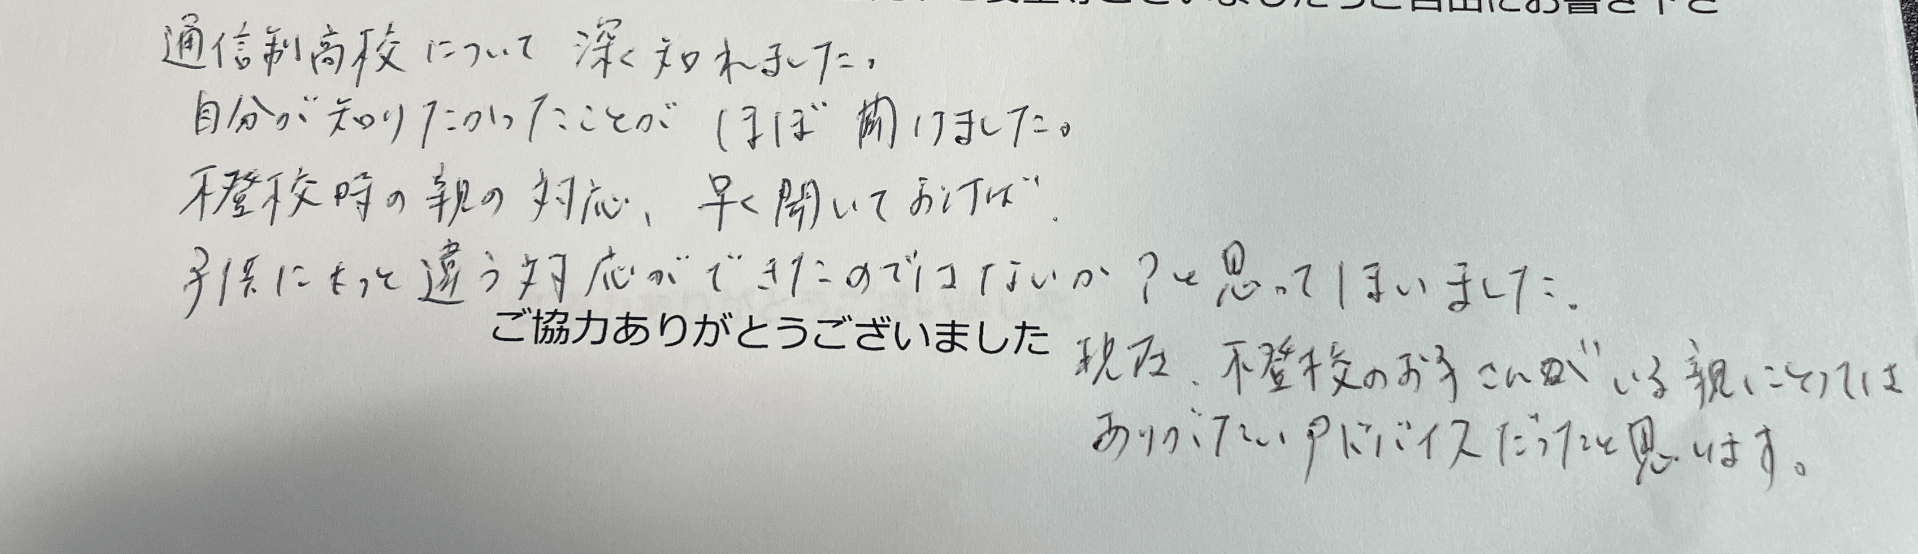 ご自由にお書き下さ
通信制高校について 深く知れました。
自分が知りたかったことが ほぼ聞けました。
不登校時の親の対応、早く聞いておけば、
子供にもっと違う対応ができたのではないか?と思ってしまいました。
ご協力ありがとうございました
現在、不登校のお子さんがいる親にとっては
ありがたいアドバイスだったと思います。